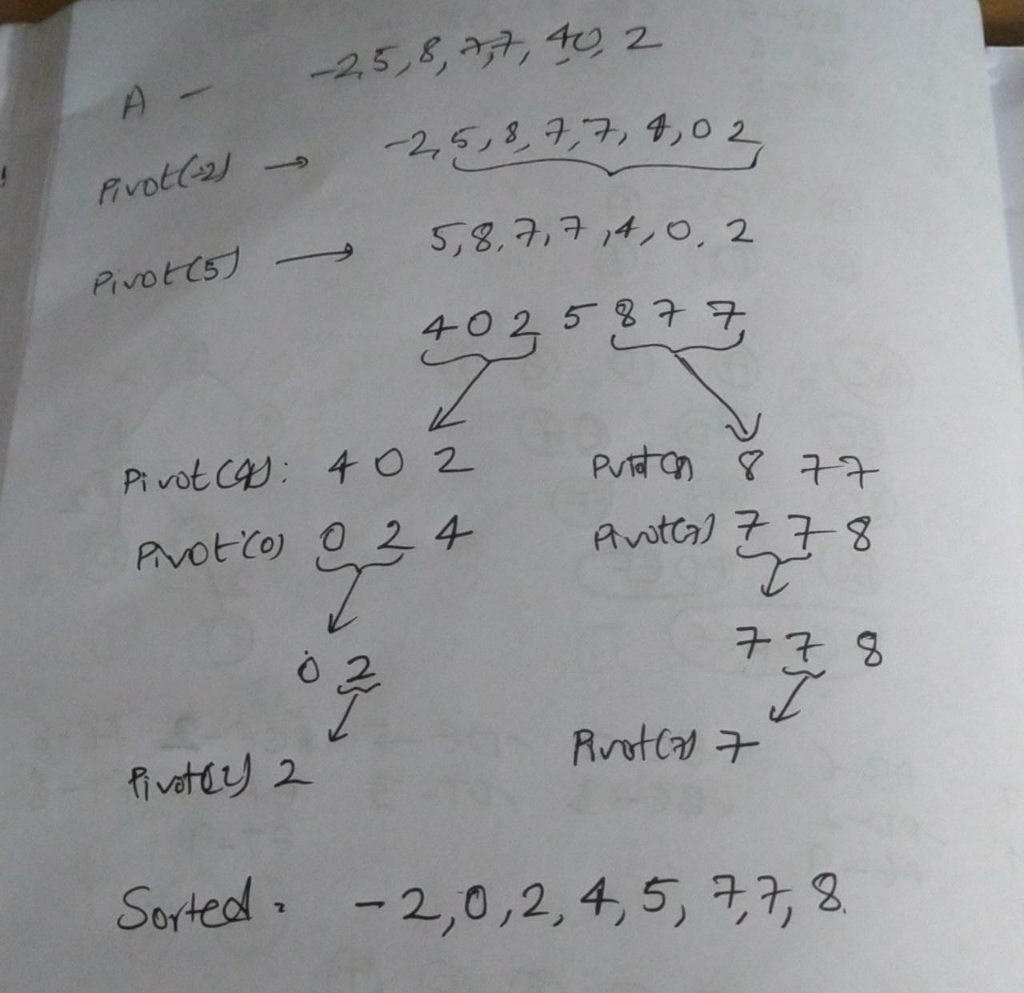 A - -2,5,8,7,7,4,0,2
Pivot(-2) → -2,5,8,7,7,4,0 2
Pivot(5) → 5,8,7,7,4,0,2
4 0 2 5 8 7 7
Pivot(4): 4 0 2 Pivot(8) 8 7 7
Pivot(0) 0 2 4 Pivot(7) 7 7 8
0 2 7 7 8
Pivot(2) 2 Pivot(7) 7
Sorted = -2,0,2,4,5,7,7,8.